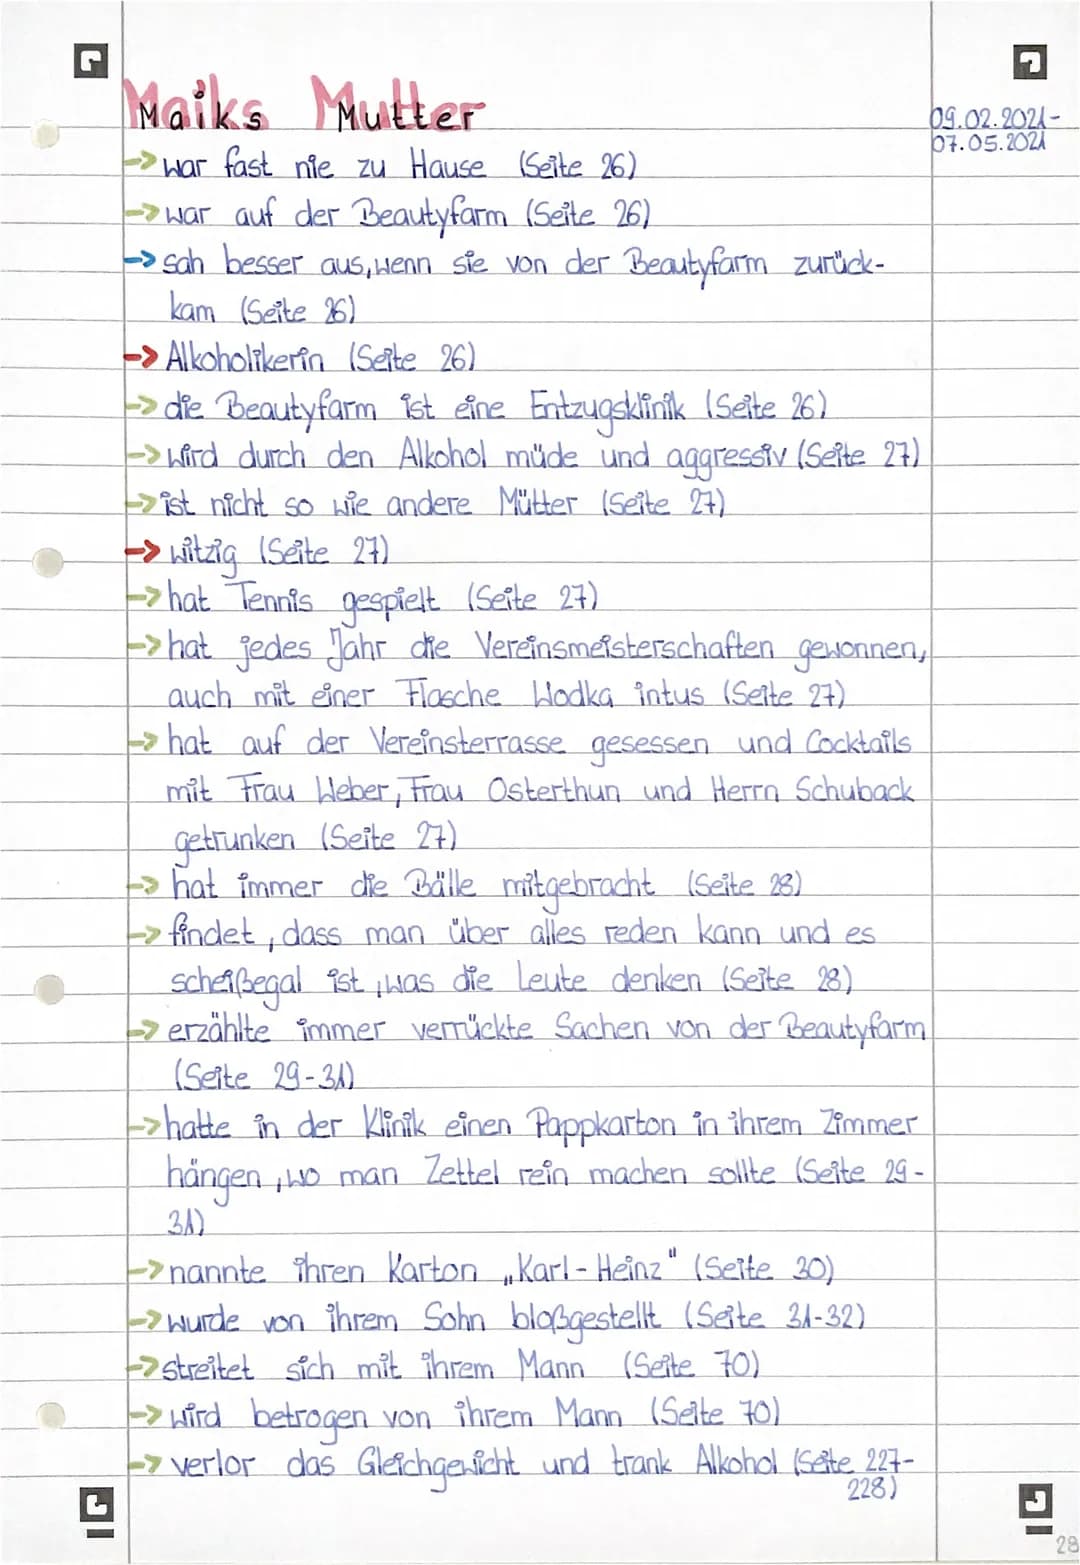 Maiks Mutter
09.02.2021-
07.05.2021
-> war fast nie zu Hause (Seite 26)
-> war auf der Beautyfarm (Seite 26)
-> sah besser aus, wenn sie von der Beautyfarm zurück-
kam (Seite 26)
-> Alkoholikerin (Seite 26)
-> die Beautyfarm ist eine Entzugsklinik (Seite 26)
-> wird durch den Alkohol müde und aggressiv (Seite 27)
-> ist nicht so wie andere Mütter (Seite 27)
-> witzig (Seite 27)
-> hat Tennis gespielt (Seite 27)
-> hat jedes Jahr die Vereinsmeisterschaften gewonnen,
auch mit einer Flasche Wodka intus (Seite 27)
-> hat auf der Vereinsterrasse gesessen und Cocktails
mit Frau Weber, Frau Osterthun und Herrn Schuback
getrunken (Seite 27)
-> hat immer die Bälle mitgebracht (Seite 28)
-> findet, dass man über alles reden kann und es
scheißegal ist, was die Leute denken (Seite 28)
-> erzählte immer verrückte Sachen von der Beautyfarm
(Seite 29-31)
-> hatte in der Klinik einen Pappkarton in ihrem Zimmer
hängen, wo man Zettel rein machen sollte (Seite 29-
31)
-> nannte ihren Karton „Karl-Heinz" (Seite 30)
-> wurde von ihrem Sohn bloßgestellt (Seite 31-32)
-> streitet sich mit ihrem Mann (Seite 70)
-> wird betrogen von ihrem Mann (Seite 70)
-> verlor das Gleichgewicht und trank Alkohol (Seite 227-
228)
28